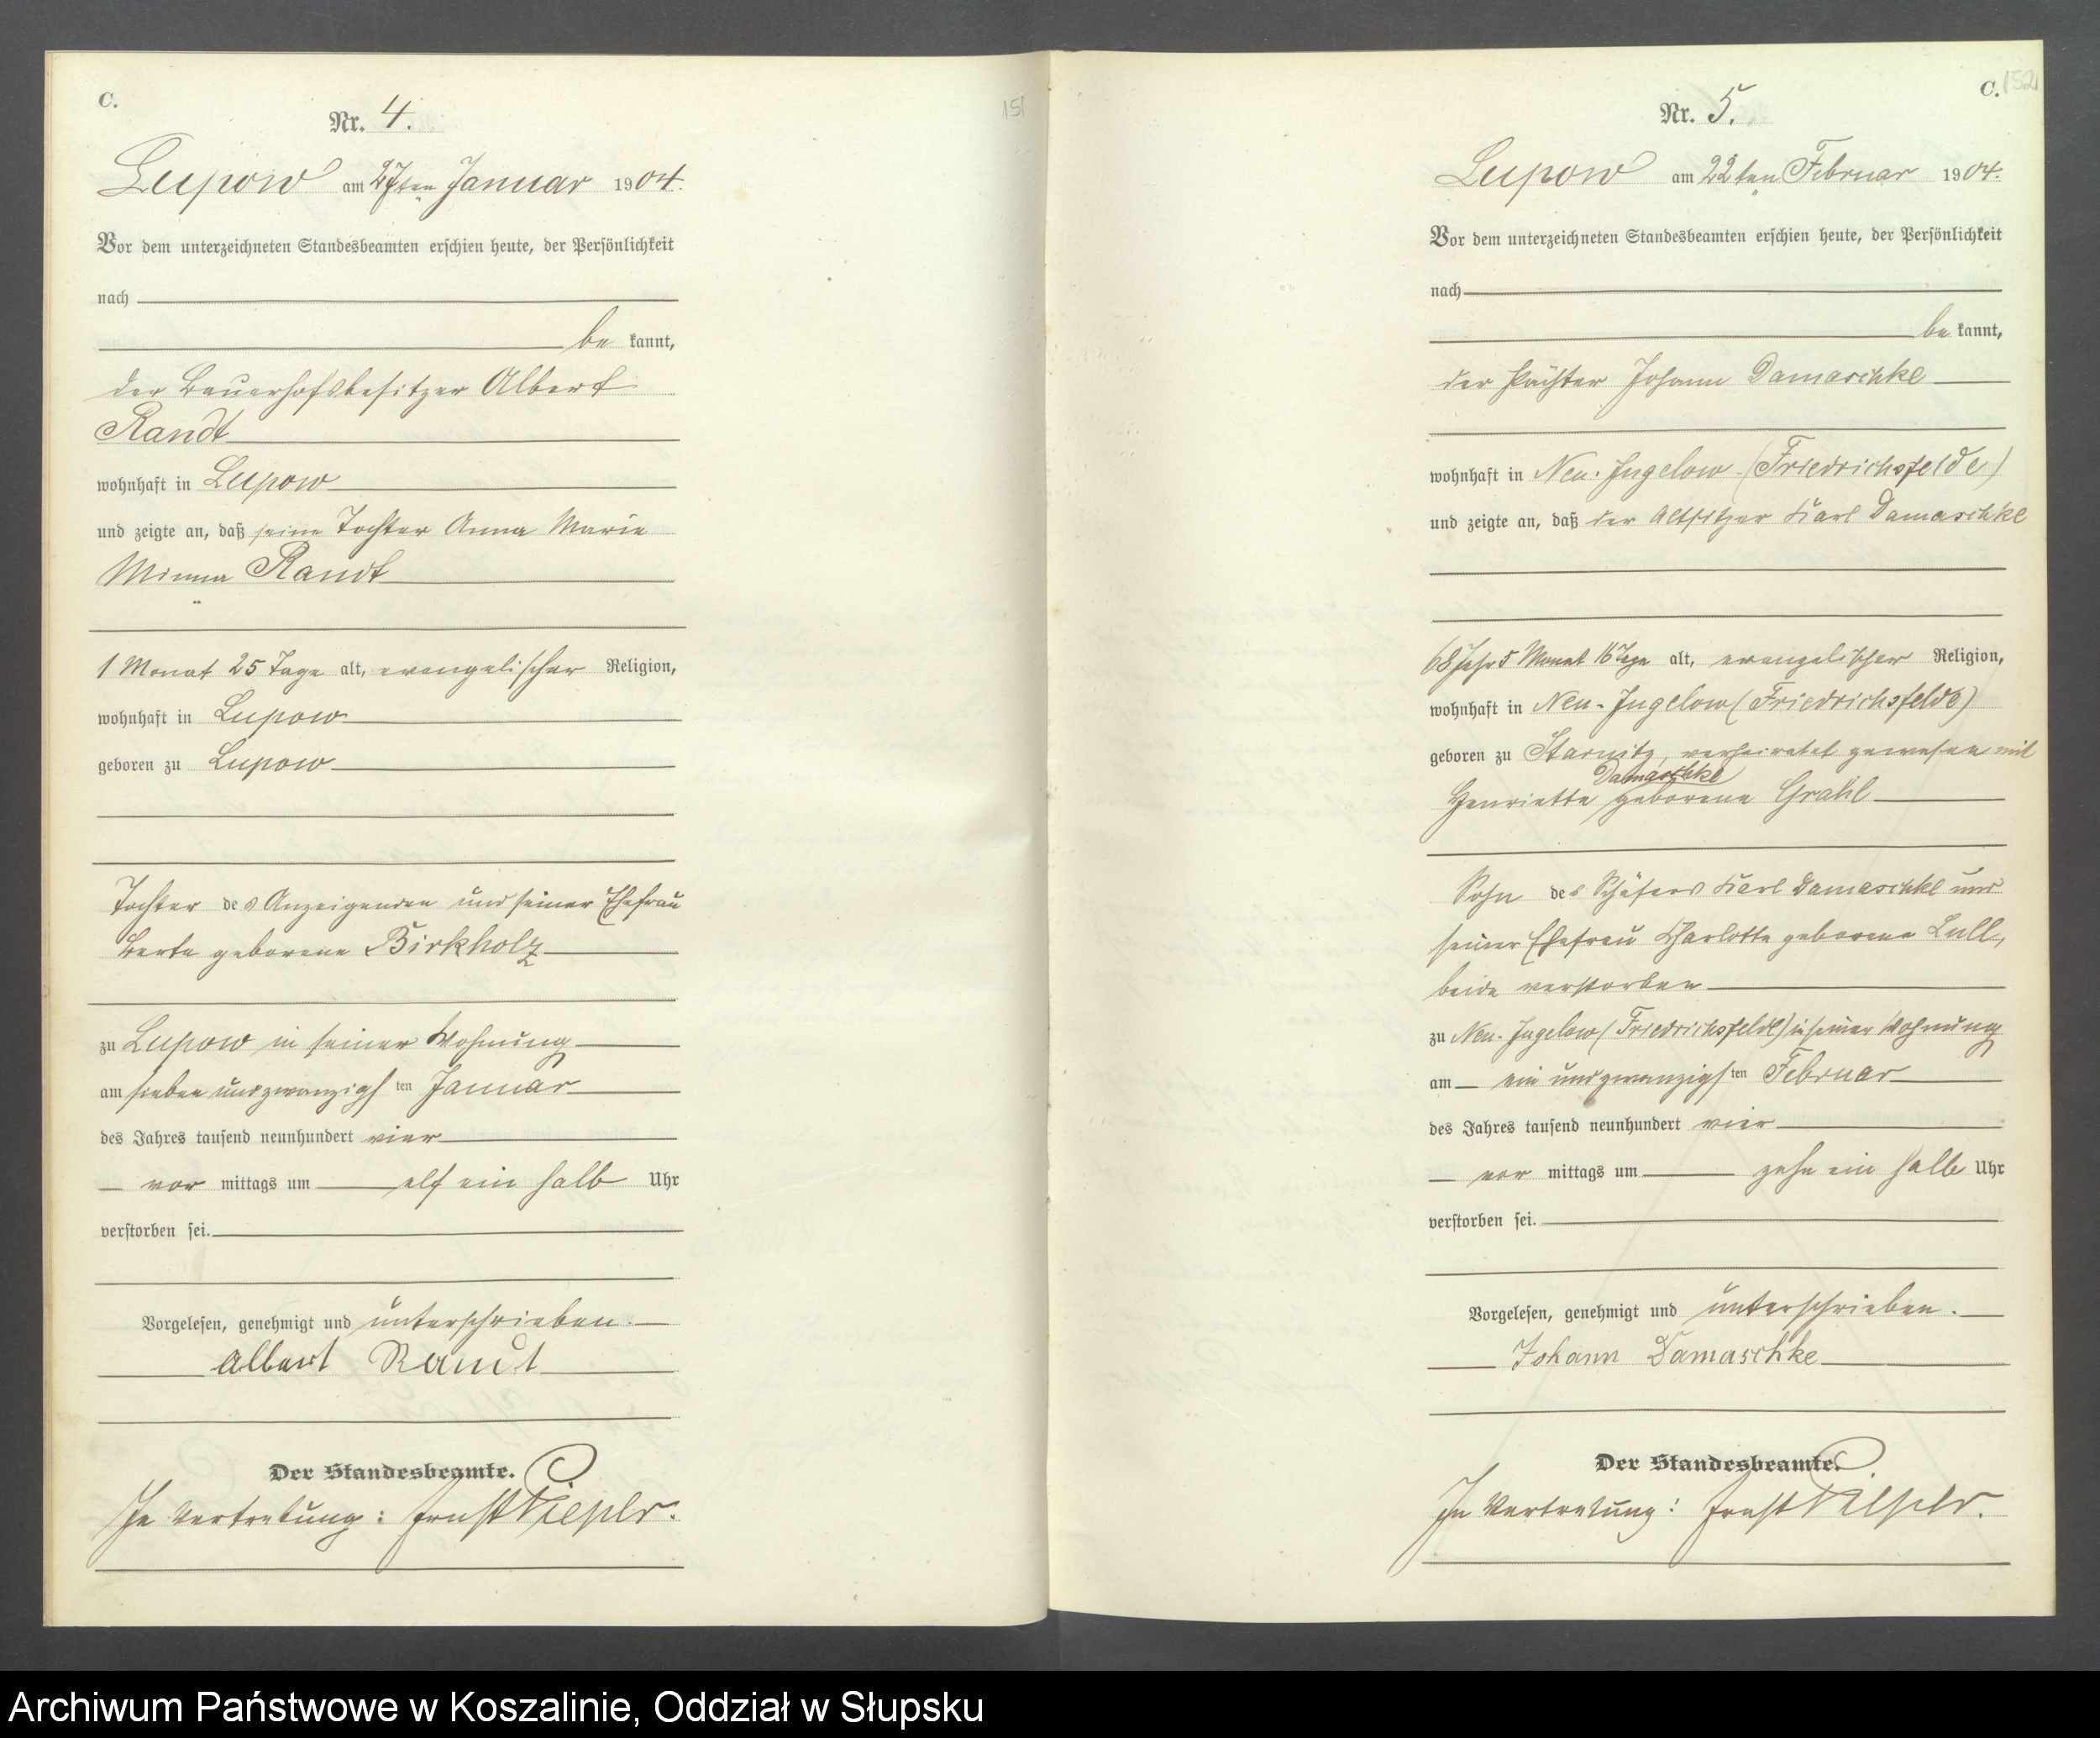 C.
Nr. 4.
Lupow am 27ten Januar 1904.
Vor dem unterzeichneten Standesbeamten erschien heute, der Persönlichkeit
nach
be kannt,
der Bauerhofsbesitzer Albert
Randt
wohnhaft in Lupow
und zeigte an, daß seine Tochter Anna Marie
Minna Randt
1 Monat 25 Tage alt, evangelischer Religion,
wohnhaft in Lupow
geboren zu Lupow
Tochter des Anzeigenden und seiner Ehefrau
Berta geborene Birkholz
zu Lupow in seiner Wohnung
am sieben und zwanzigsten Januar
des Jahres tausend neunhundert vier
vor mittags um elf ein halb Uhr
verstorben sei.
Vorgelesen, genehmigt und unterschrieben.
Albert Randt
Der Standesbeamte.
In Vertretung: Ernst Pieper.
151
C. 152
Nr. 5.
Lupow am 22ten Februar 1904.
Vor dem unterzeichneten Standesbeamten erschien heute, der Persönlichkeit
nach
be kannt,
der Pächter Johann Damaschke
wohnhaft in Neu-Jugelow (Friedrichsfelde)
und zeigte an, daß der Altsitzer Karl Damaschke
68 Jahr 5 Monat 16 Tage alt, evangelischer Religion,
wohnhaft in Neu-Jugelow (Friedrichsfelde)
geboren zu Starnitz, verheiratet gewesen mit
Damaschke
Henriette geborene Grahl
Sohn des Schäfers Karl Damaschke und
seiner Ehefrau Charlotte geborene Lull,
beide verstorben
zu Neu-Jugelow (Friedrichsfelde) in seiner Wohnung
am ein und zwanzigsten Februar
des Jahres tausend neunhundert vier
vor mittags um zehn ein halb Uhr
verstorben sei.
Vorgelesen, genehmigt und unterschrieben.
Johann Damaschke
Der Standesbeamte.
In Vertretung: Ernst Pieper.
Archiwum Państwowe w Koszalinie, Oddział w Słupsku